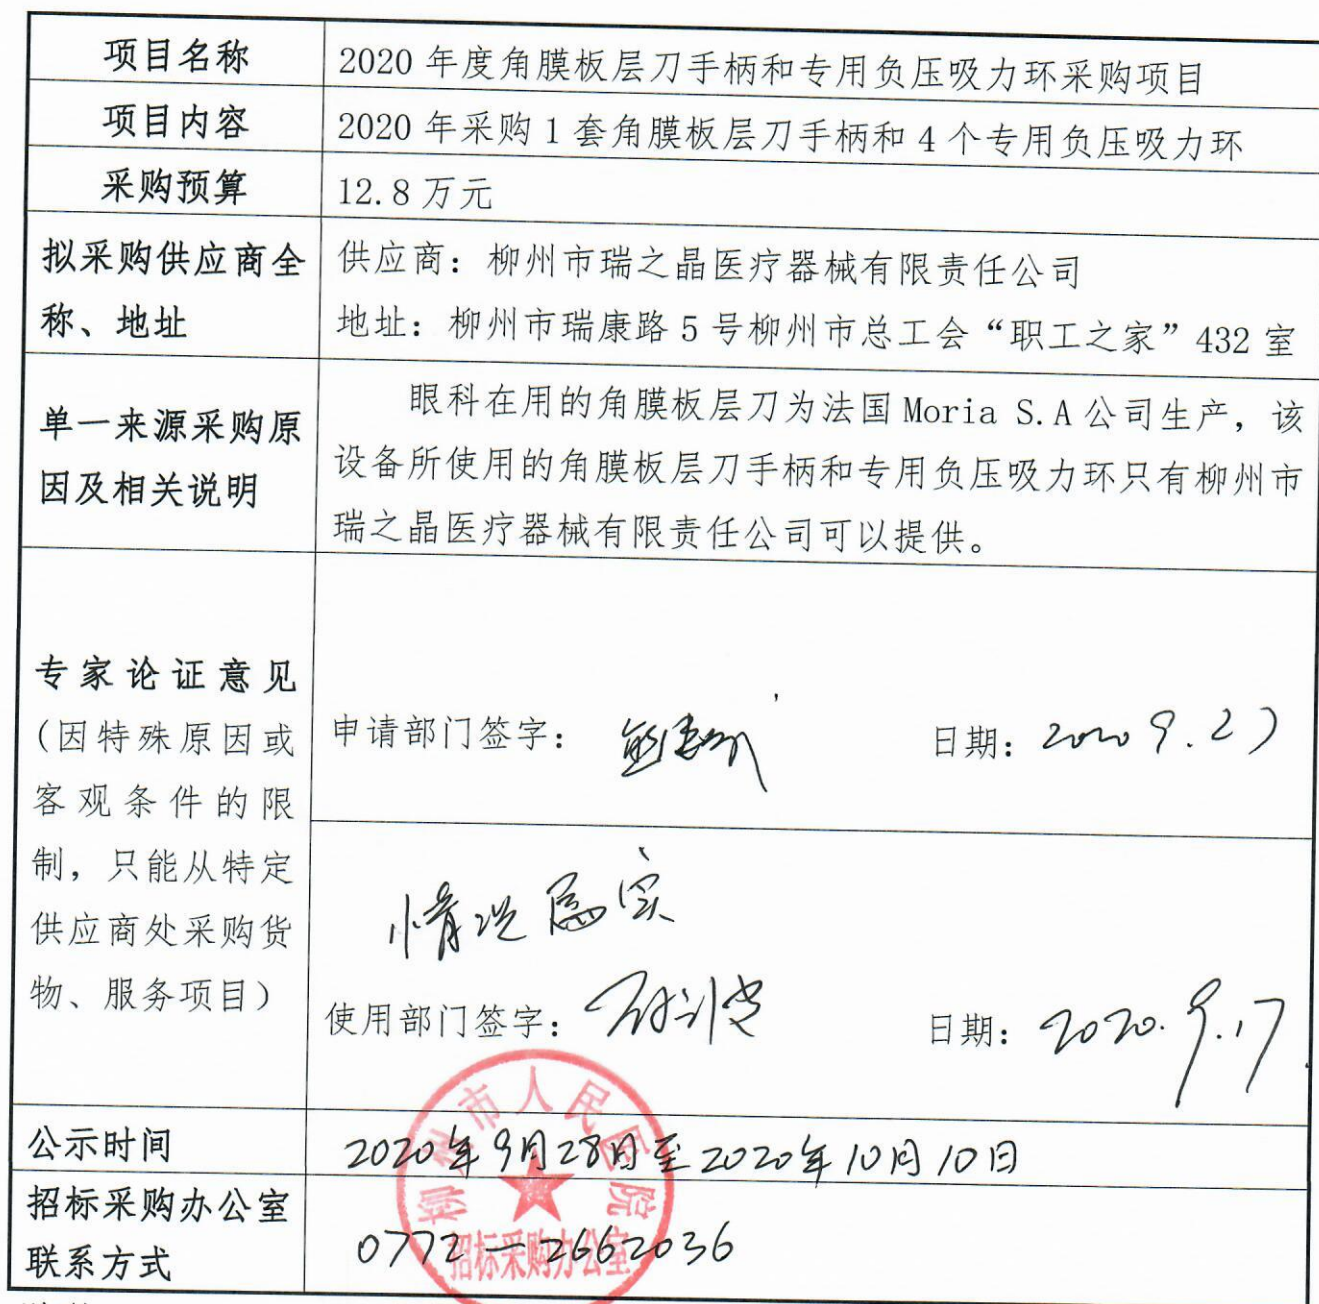 项目名称
2020 年度角膜板层刀手柄和专用负压吸力环采购项目
项目内容
2020 年采购 1 套角膜板层刀手柄和 4 个专用负压吸力环
采购预算
12.8 万元
拟采购供应商全
称、地址
供应商：柳州市瑞之晶医疗器械有限责任公司
地址：柳州市瑞康路 5 号柳州市总工会“职工之家”432 室
单一来源采购原
因及相关说明
眼科在用的角膜板层刀为法国 Moria S.A 公司生产，该
设备所使用的角膜板层刀手柄和专用负压吸力环只有柳州市
瑞之晶医疗器械有限责任公司可以提供。
专家论证意见
（因特殊原因或
客观条件的限
制，只能从特定
供应商处采购货
物、服务项目）
申请部门签字：
日期：2020 9.27
情况属实
使用部门签字：
日期：2020.9.17
公示时间
2020年9月28日至2020年10月10日
招标采购办公室
联系方式
0772-2662036
柳州市人民医院
招标采购办公室